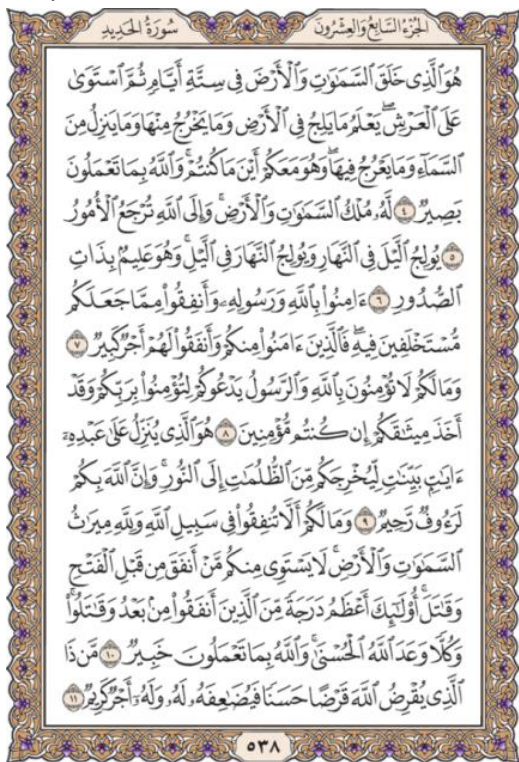 الجزء السابع والعشرون
سورة الحديد
هُوَ ٱلَّذِى خَلَقَ ٱلسَّمَٰوَٰتِ وَٱلْأَرْضَ فِى سِتَّةِ أَيَّامٍ ثُمَّ ٱسْتَوَىٰ
عَلَى ٱلْعَرْشِ ۖ يَعْلَمُ مَا يَلِجُ فِى ٱلْأَرْضِ وَمَا يَخْرُجُ مِنْهَا وَمَا يَنزِلُ مِنَ
ٱلسَّمَآءِ وَمَا يَعْرُجُ فِيهَا ۖ وَهُوَ مَعَكُمْ أَيْنَ مَا كُنتُمْ ۚ وَٱللَّهُ بِمَا تَعْمَلُونَ
بَصِيرٌ ٤ لَّهُۥ مُلْكُ ٱلسَّمَٰوَٰتِ وَٱلْأَرْضِ ۚ وَإِلَى ٱللَّهِ تُرْجَعُ ٱلْأُمُورُ
٥ يُولِجُ ٱلَّيْلَ فِى ٱلنَّهَارِ وَيُولِجُ ٱلنَّهَارَ فِى ٱلَّيْلِ ۚ وَهُوَ عَلِيمٌۢ بِذَاتِ
ٱلصُّدُورِ ٦ ءَامِنُوا۟ بِٱللَّهِ وَرَسُولِهِۦ وَأَنفِقُوا۟ مِمَّا جَعَلَكُم
مُّسْتَخْلَفِينَ فِيهِ ۖ فَٱلَّذِينَ ءَامَنُوا۟ مِنكُمْ وَأَنفَقُوا۟ لَهُمْ أَجْرٌ كَبِيرٌ ٧
وَمَا لَكُمْ لَا تُؤْمِنُونَ بِٱللَّهِ ۙ وَٱلرَّسُولُ يَدْعُوكُمْ لِتُؤْمِنُوا۟ بِرَبِّكُمْ وَقَدْ
أَخَذَ مِيثَٰقَكُمْ إِن كُنتُم مُّؤْمِنِينَ ٨ هُوَ ٱلَّذِى يُنَزِّلُ عَلَىٰ عَبْدِهِۦٓ
ءَايَٰتٍۭ بَيِّنَٰتٍ لِّيُخْرِجَكُم مِّنَ ٱلظُّلُمَٰتِ إِلَى ٱلنُّورِ ۚ وَإِنَّ ٱللَّهَ بِكُمْ
لَرَءُوفٌ رَّحِيمٌ ٩ وَمَا لَكُمْ أَلَّا تُنفِقُوا۟ فِى سَبِيلِ ٱللَّهِ وَلِلَّهِ مِيرَٰثُ
ٱلسَّمَٰوَٰتِ وَٱلْأَرْضِ ۚ لَا يَسْتَوِى مِنكُم مَّنْ أَنفَقَ مِن قَبْلِ ٱلْفَتْحِ
وَقَٰتَلَ ۚ أُو۟لَٰٓئِكَ أَعْظَمُ دَرَجَةً مِّنَ ٱلَّذِينَ أَنفَقُوا۟ مِنۢ بَعْدُ وَقَٰتَلُوا۟ ۚ
وَكُلًّا وَعَدَ ٱللَّهُ ٱلْحُسْنَىٰ ۚ وَٱللَّهُ بِمَا تَعْمَلُونَ خَبِيرٌ ١٠ مَّن ذَا
ٱلَّذِى يُقْرِضُ ٱللَّهَ قَرْضًا حَسَنًا فَيُضَٰعِفَهُۥ لَهُۥ وَلَهُۥٓ أَجْرٌ كَرِيمٌ ١١
٥٣٨